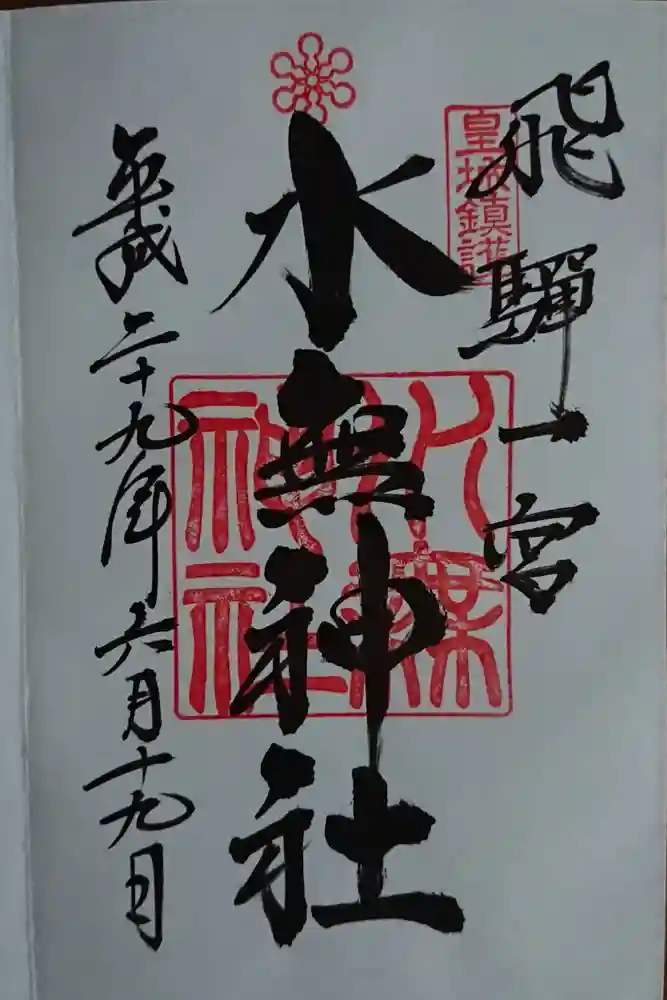 飛騨一宮
皇城鎮護
水無神社
平成二十九年六月十九日